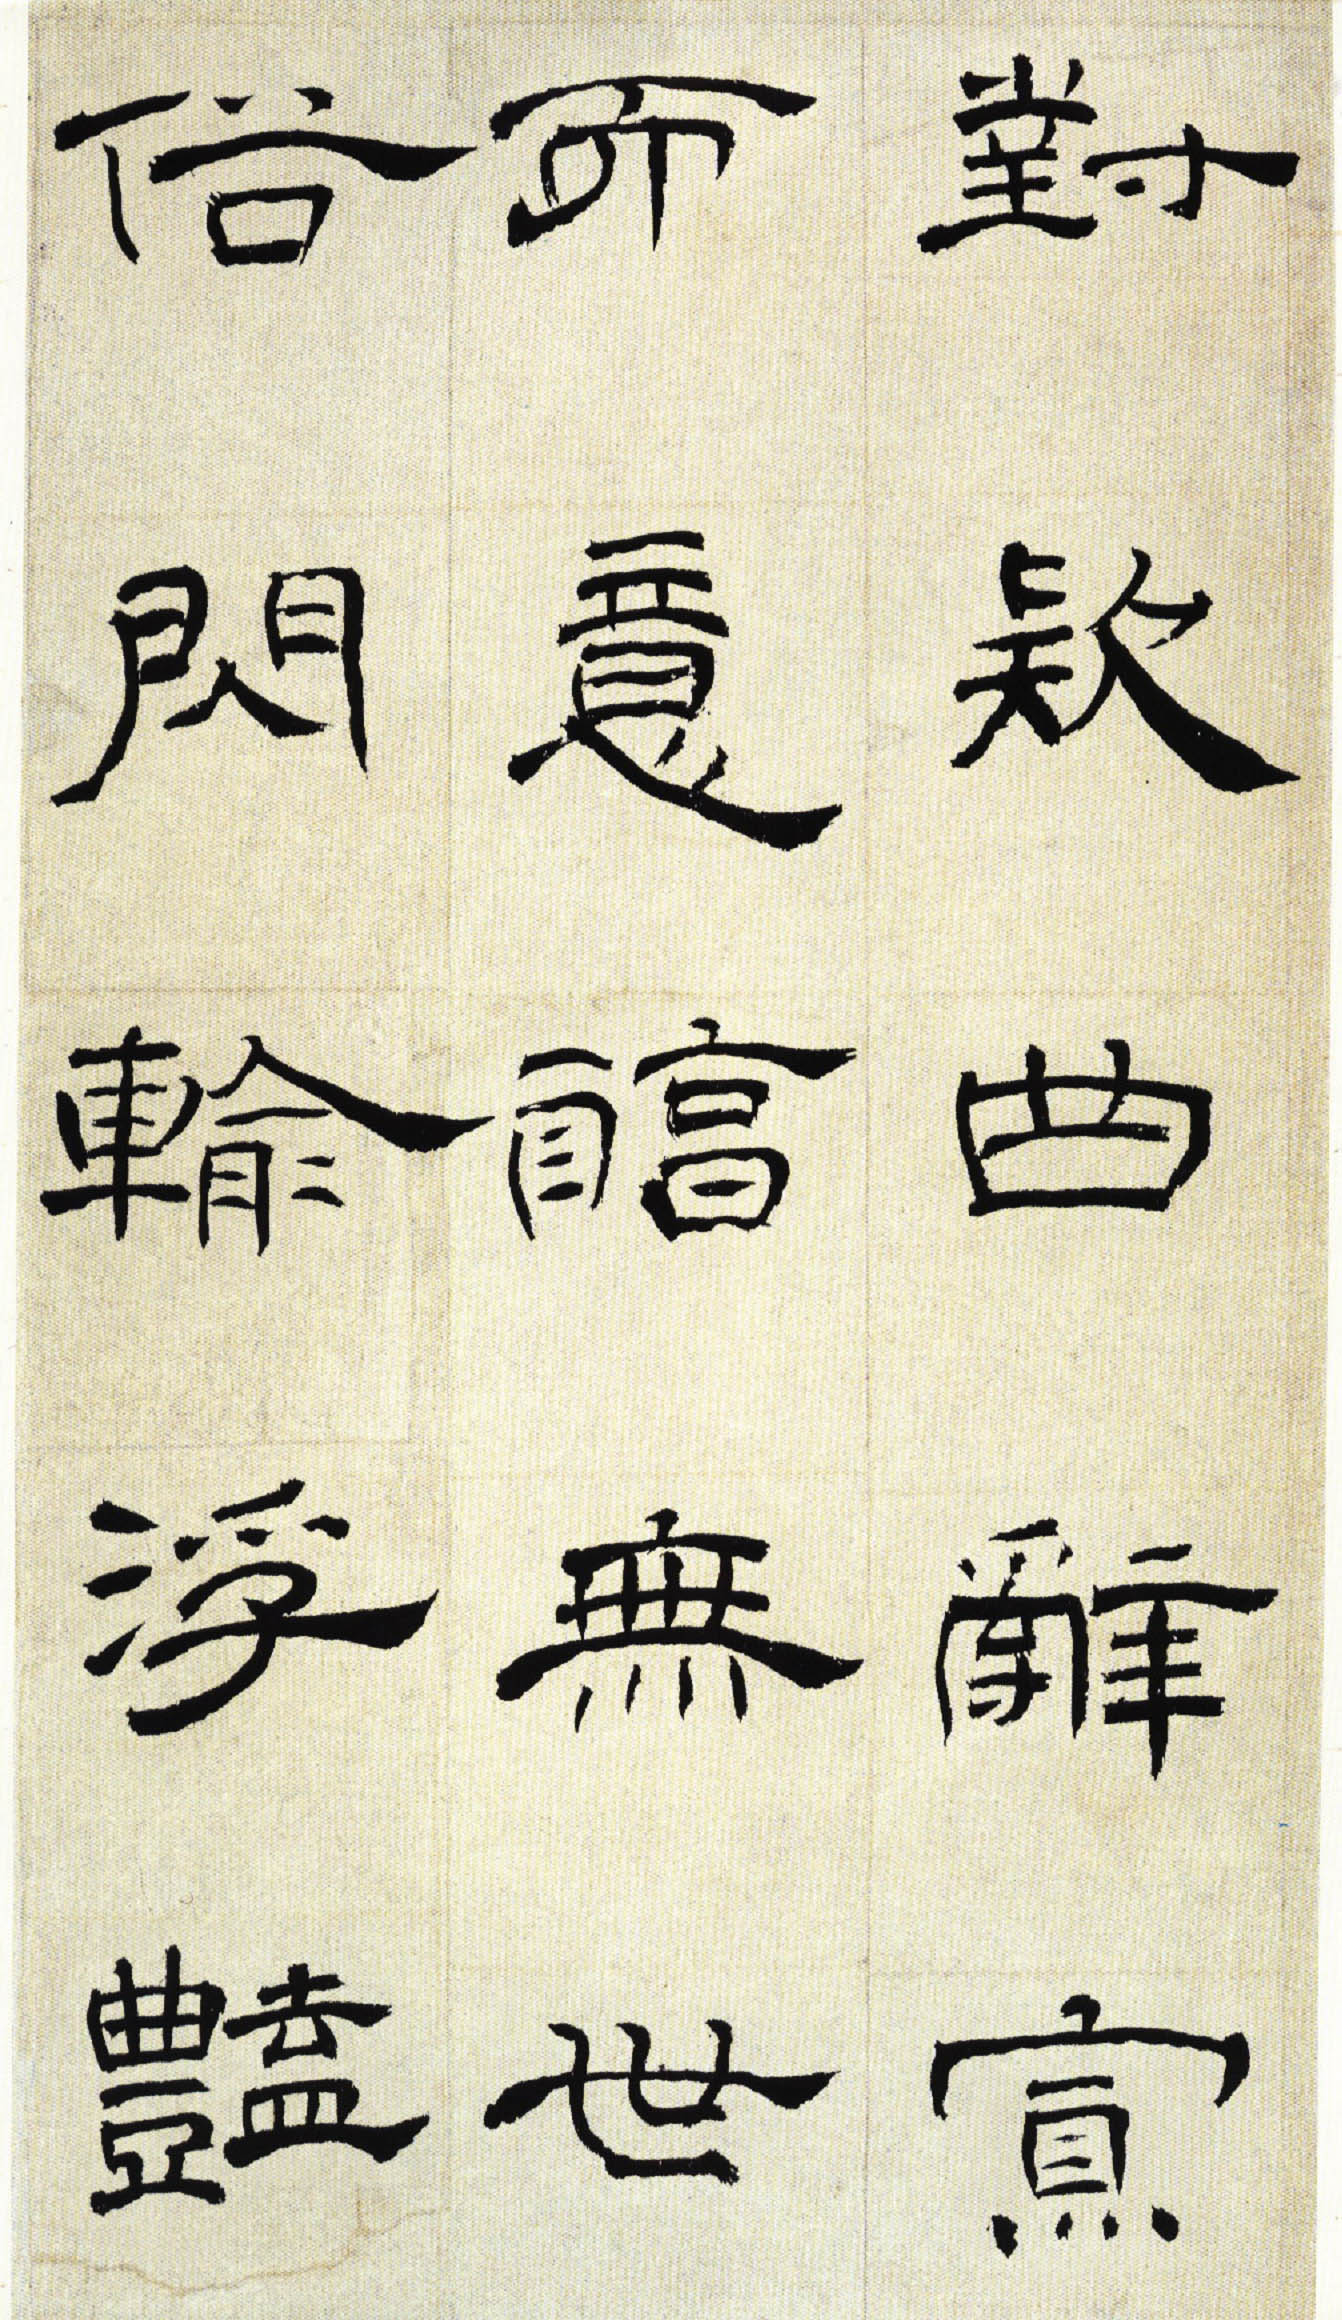 對欵曲辭寡
而意醇無世
俗閃輸浮豔